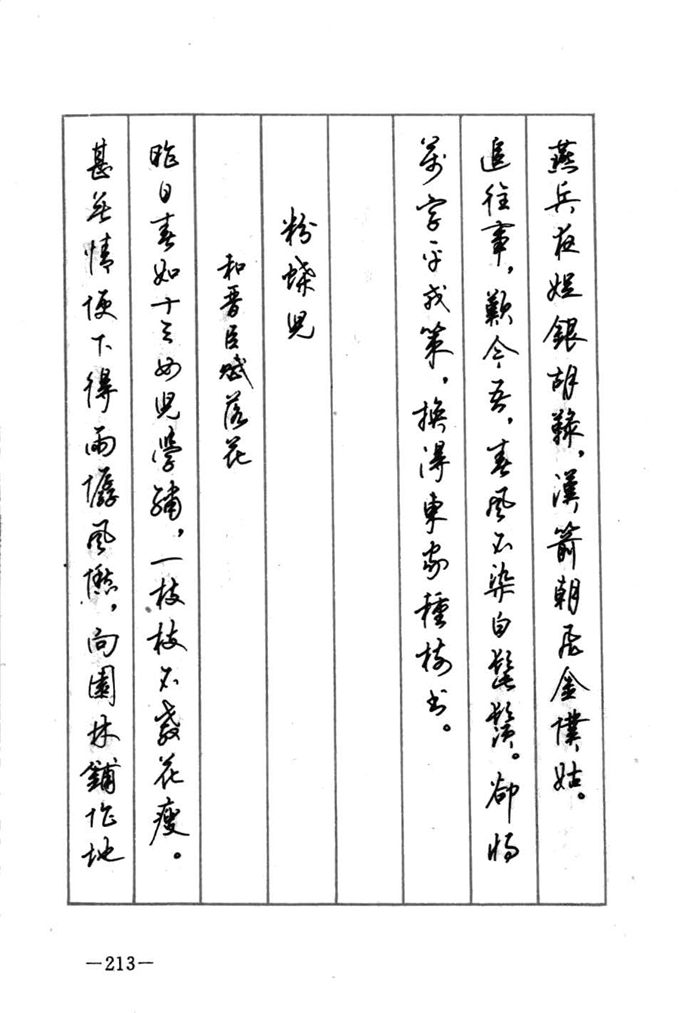 燕兵夜娖銀胡䩮，漢箭朝飛金僕姑。
追往事，歎今吾，春風不染白髭鬚。卻將
萬字平戎策，換得東家種樹書。
粉蝶兒
和晋臣賦落花
昨日春如十三女兒學繡，一枝枝不教花瘦。
甚無情便下得雨僝風僽，向園林鋪作地
—213—